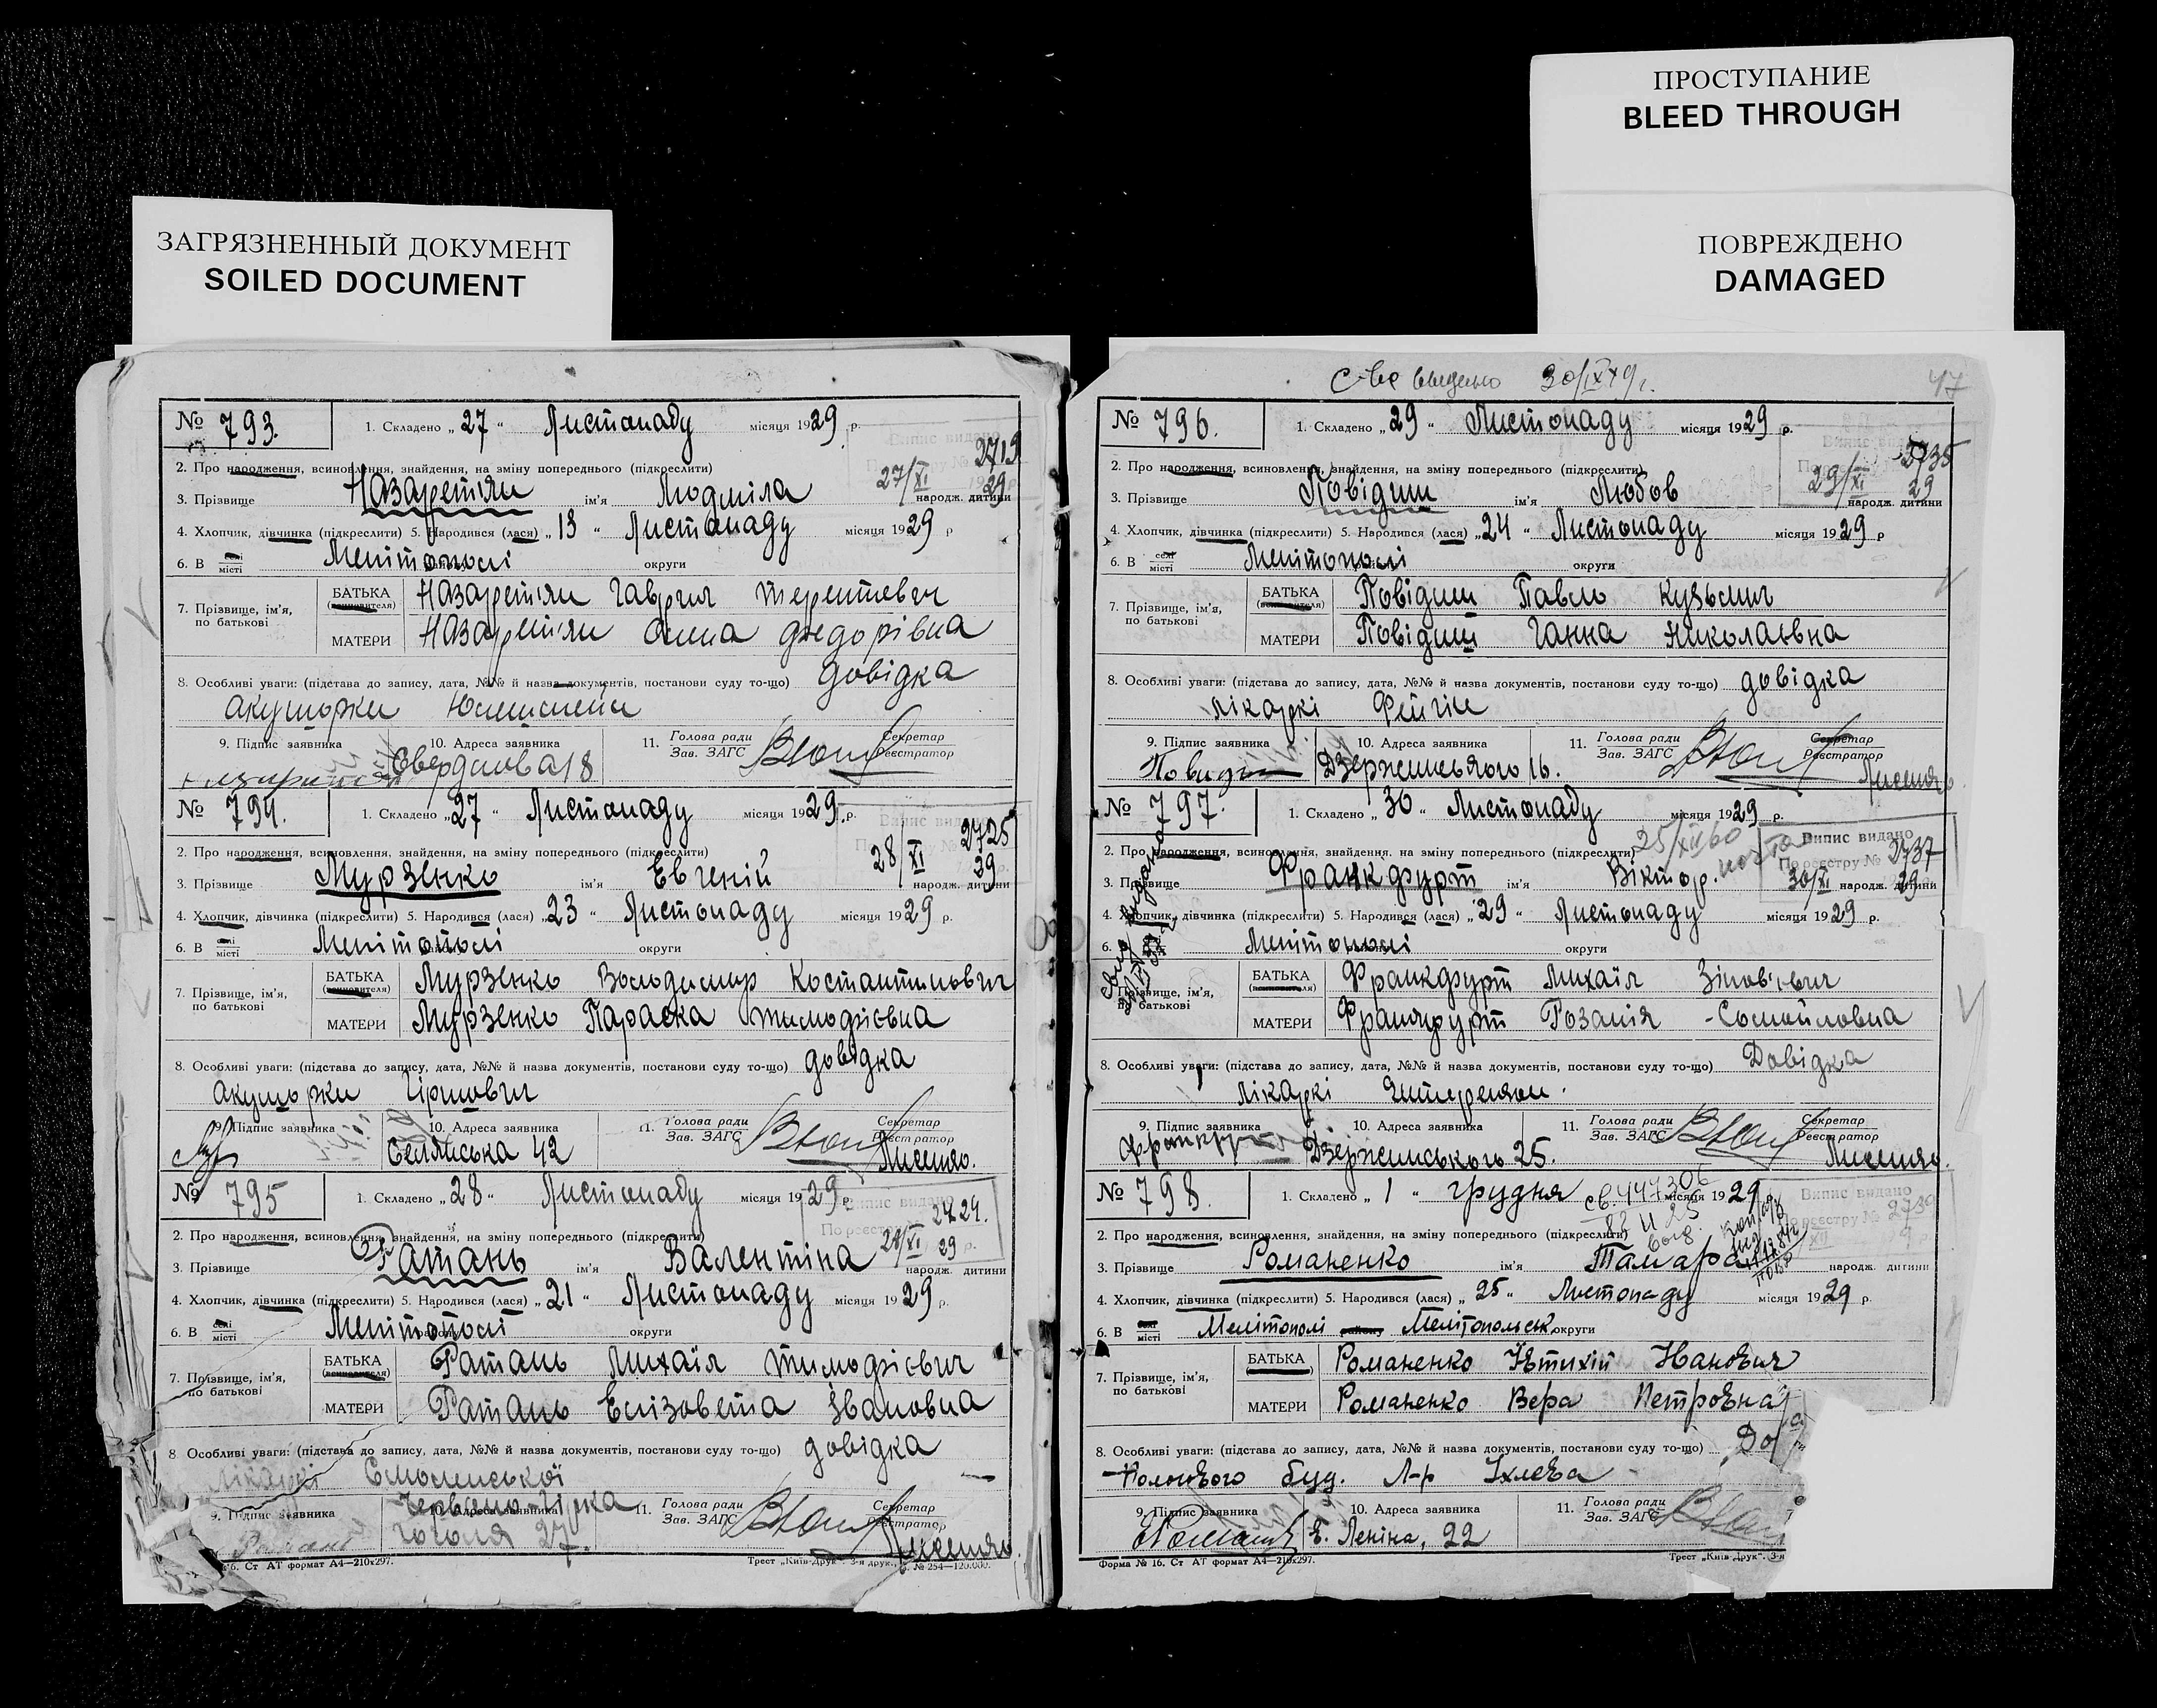 ПРОСТУПАНИЕ
BLEED THROUGH
ПОВРЕЖДЕНО
DAMAGED
ЗАГРЯЗНЕННЫЙ ДОКУМЕНТ
SOILED DOCUMENT
№ 793. 1. Складено „27“ Листопаду місяця 1929 р.
Випис видано
2719
27/XI 29
2. Про народження, всиновлення, знайдення, на зміну попереднього (підкреслити)
3. Прізвище Назаретян ім'я Людміла народж. дитини
4. Хлопчик, дівчинка (підкреслити) 5. Народився (лася) „13“ Листопаду місяця 1929 р
6. В селі місті Мелітополі округи
7. Прізвище, ім'я, по батькові
БАТЬКА Назаретян Гаврил Терентевич
МАТЕРИ Назаретян Олена Федорівна
8. Особливі уваги: (підстава до запису, дата, №№ й назва документів, постанови суду то-що) довідка
акушорки
9. Підпис заявника 10. Адреса заявника 11. Голова ради Зав. ЗАГС Секретар Реєстратор
Свердлова 18
№ 794. 1. Складено „27“ Листопаду місяця 1929 р.
Випис видано
2725
28/XI 29
2. Про народження, всиновлення, знайдення, на зміну попереднього (підкреслити)
3. Прізвище Мурзенко ім'я Евгеній народж. дитини
4. Хлопчик, дівчинка (підкреслити) 5. Народився (лася) „23“ Листопаду місяця 1929 р.
6. В селі місті Мелітополі округи
7. Прізвище, ім'я, по батькові
БАТЬКА Мурзенко Володимир Костантинович
МАТЕРИ Мурзенко Параска Тимофієвна
8. Особливі уваги: (підстава до запису, дата, №№ й назва документів, постанови суду то-що) довідка
акушорки Гіршович
9. Підпис заявника 10. Адреса заявника 11. Голова ради Зав. ЗАГС Секретар Реєстратор
Селянська 42
№ 795 1. Складено „28“ Листопаду місяця 1929 р.
Випис видано
По реєстру № 2724.
28/XI 29 р.
2. Про народження, всиновлення, знайдення, на зміну попереднього (підкреслити)
3. Прізвище Ратань ім'я Валентіна народж. дитини
4. Хлопчик, дівчинка (підкреслити) 5. Народився (лася) „21“ Листопаду місяця 1929 р.
6. В селі місті Мелітополі округи
7. Прізвище, ім'я, по батькові
БАТЬКА Ратань Михаїл Тимофієвич
МАТЕРИ Ратань Елізовета Івановна
8 Особливі уваги: (підстава до запису, дата, №№ й назва документів, постанови суду то-що) довідка
Лікаркі Смоленської
9. Підпис заявника 10. Адреса заявника 11. Голова ради Зав. ЗАГС Секретар Реєстратор
Гоголя 27.
Ст АТ формат А4—210х297. Трест „Київ-Друк“. 3-я друк. № 254—120.000.
47
№ 796. 1. Складено „29“ Листопаду місяця 1929 р.
Випис видано
2735
29/XI 29
2. Про народження, всиновлення, знайдення, на зміну попереднього (підкреслити)
3. Прізвище Повідиш ім'я Любов народж. дитини
4. Хлопчик, дівчинка (підкреслити) 5. Народився (лася) „24“ Листопаду місяця 1929 р
6. В селі місті Мелітополі округи
7. Прізвище, ім'я, по батькові
БАТЬКА Повідиш Павло Кузьмич
МАТЕРИ Повідиш Ганна Николаьвна
8. Особливі уваги: (підстава до запису, дата, №№ й назва документів, постанови суду то-що) довідка
лікаркі Фейгін
9. Підпис заявника 10. Адреса заявника 11. Голова ради Зав. ЗАГС Секретар Реєстратор
Дзержинського 16.
№ 797. 1. Складено „30“ Листопаду місяця 1929 р.
25/XII 60
Випис видано
По реєстру № 2737
30/XI 29
2. Про народження, всиновлення, знайдення, на зміну попереднього (підкреслити)
3. Прізвище Франкфурт ім'я Віктор. народж. дитини
4. Хлопчик, дівчинка (підкреслити) 5. Народився (лася) „29“ Листопаду місяця 1929 р.
6. Мелітополі округи
7. Прізвище, ім'я, по батькові
БАТЬКА Франкфурт Михаїл Зіновієвич
МАТЕРИ Франкфурт Розалія Самойловна
8. Особливі уваги: (підстава до запису, дата, №№ й назва документів, постанови суду то-що) Довідка
лікаркі
9. Підпис заявника 10. Адреса заявника 11. Голова ради Зав. ЗАГС Секретар Реєстратор
Дзержинського 25.
№ 798. 1. Складено „1“ грудня місяця 1929 р.
Св. 447306
Випис видано
По реєстру № 2739
2. Про народження, всиновлення, знайдення, на зміну попереднього (підкреслити)
3. Прізвище Романенко ім'я Тамара народж. дитини
4. Хлопчик, дівчинка (підкреслити) 5. Народився (лася) „25“ Листопаду місяця 1929 р.
6. В селі місті Мелітополі району Мелітопольск. округи
7. Прізвище, ім'я, по батькові
БАТЬКА Романенко Івтихій Иванович
МАТЕРИ Романенко Вера Петровна
8. Особливі уваги: (підстава до запису, дата, №№ й назва документів, постанови суду то-що) До
Пологового буд. Л-р Іхлева
9. Підпис заявника 10. Адреса заявника 11. Голова ради Зав. ЗАГС
Е. Леніна, 22
Форма № 16. Ст АТ формат А4—210х297. Трест „Київ-Друк“. 3-я